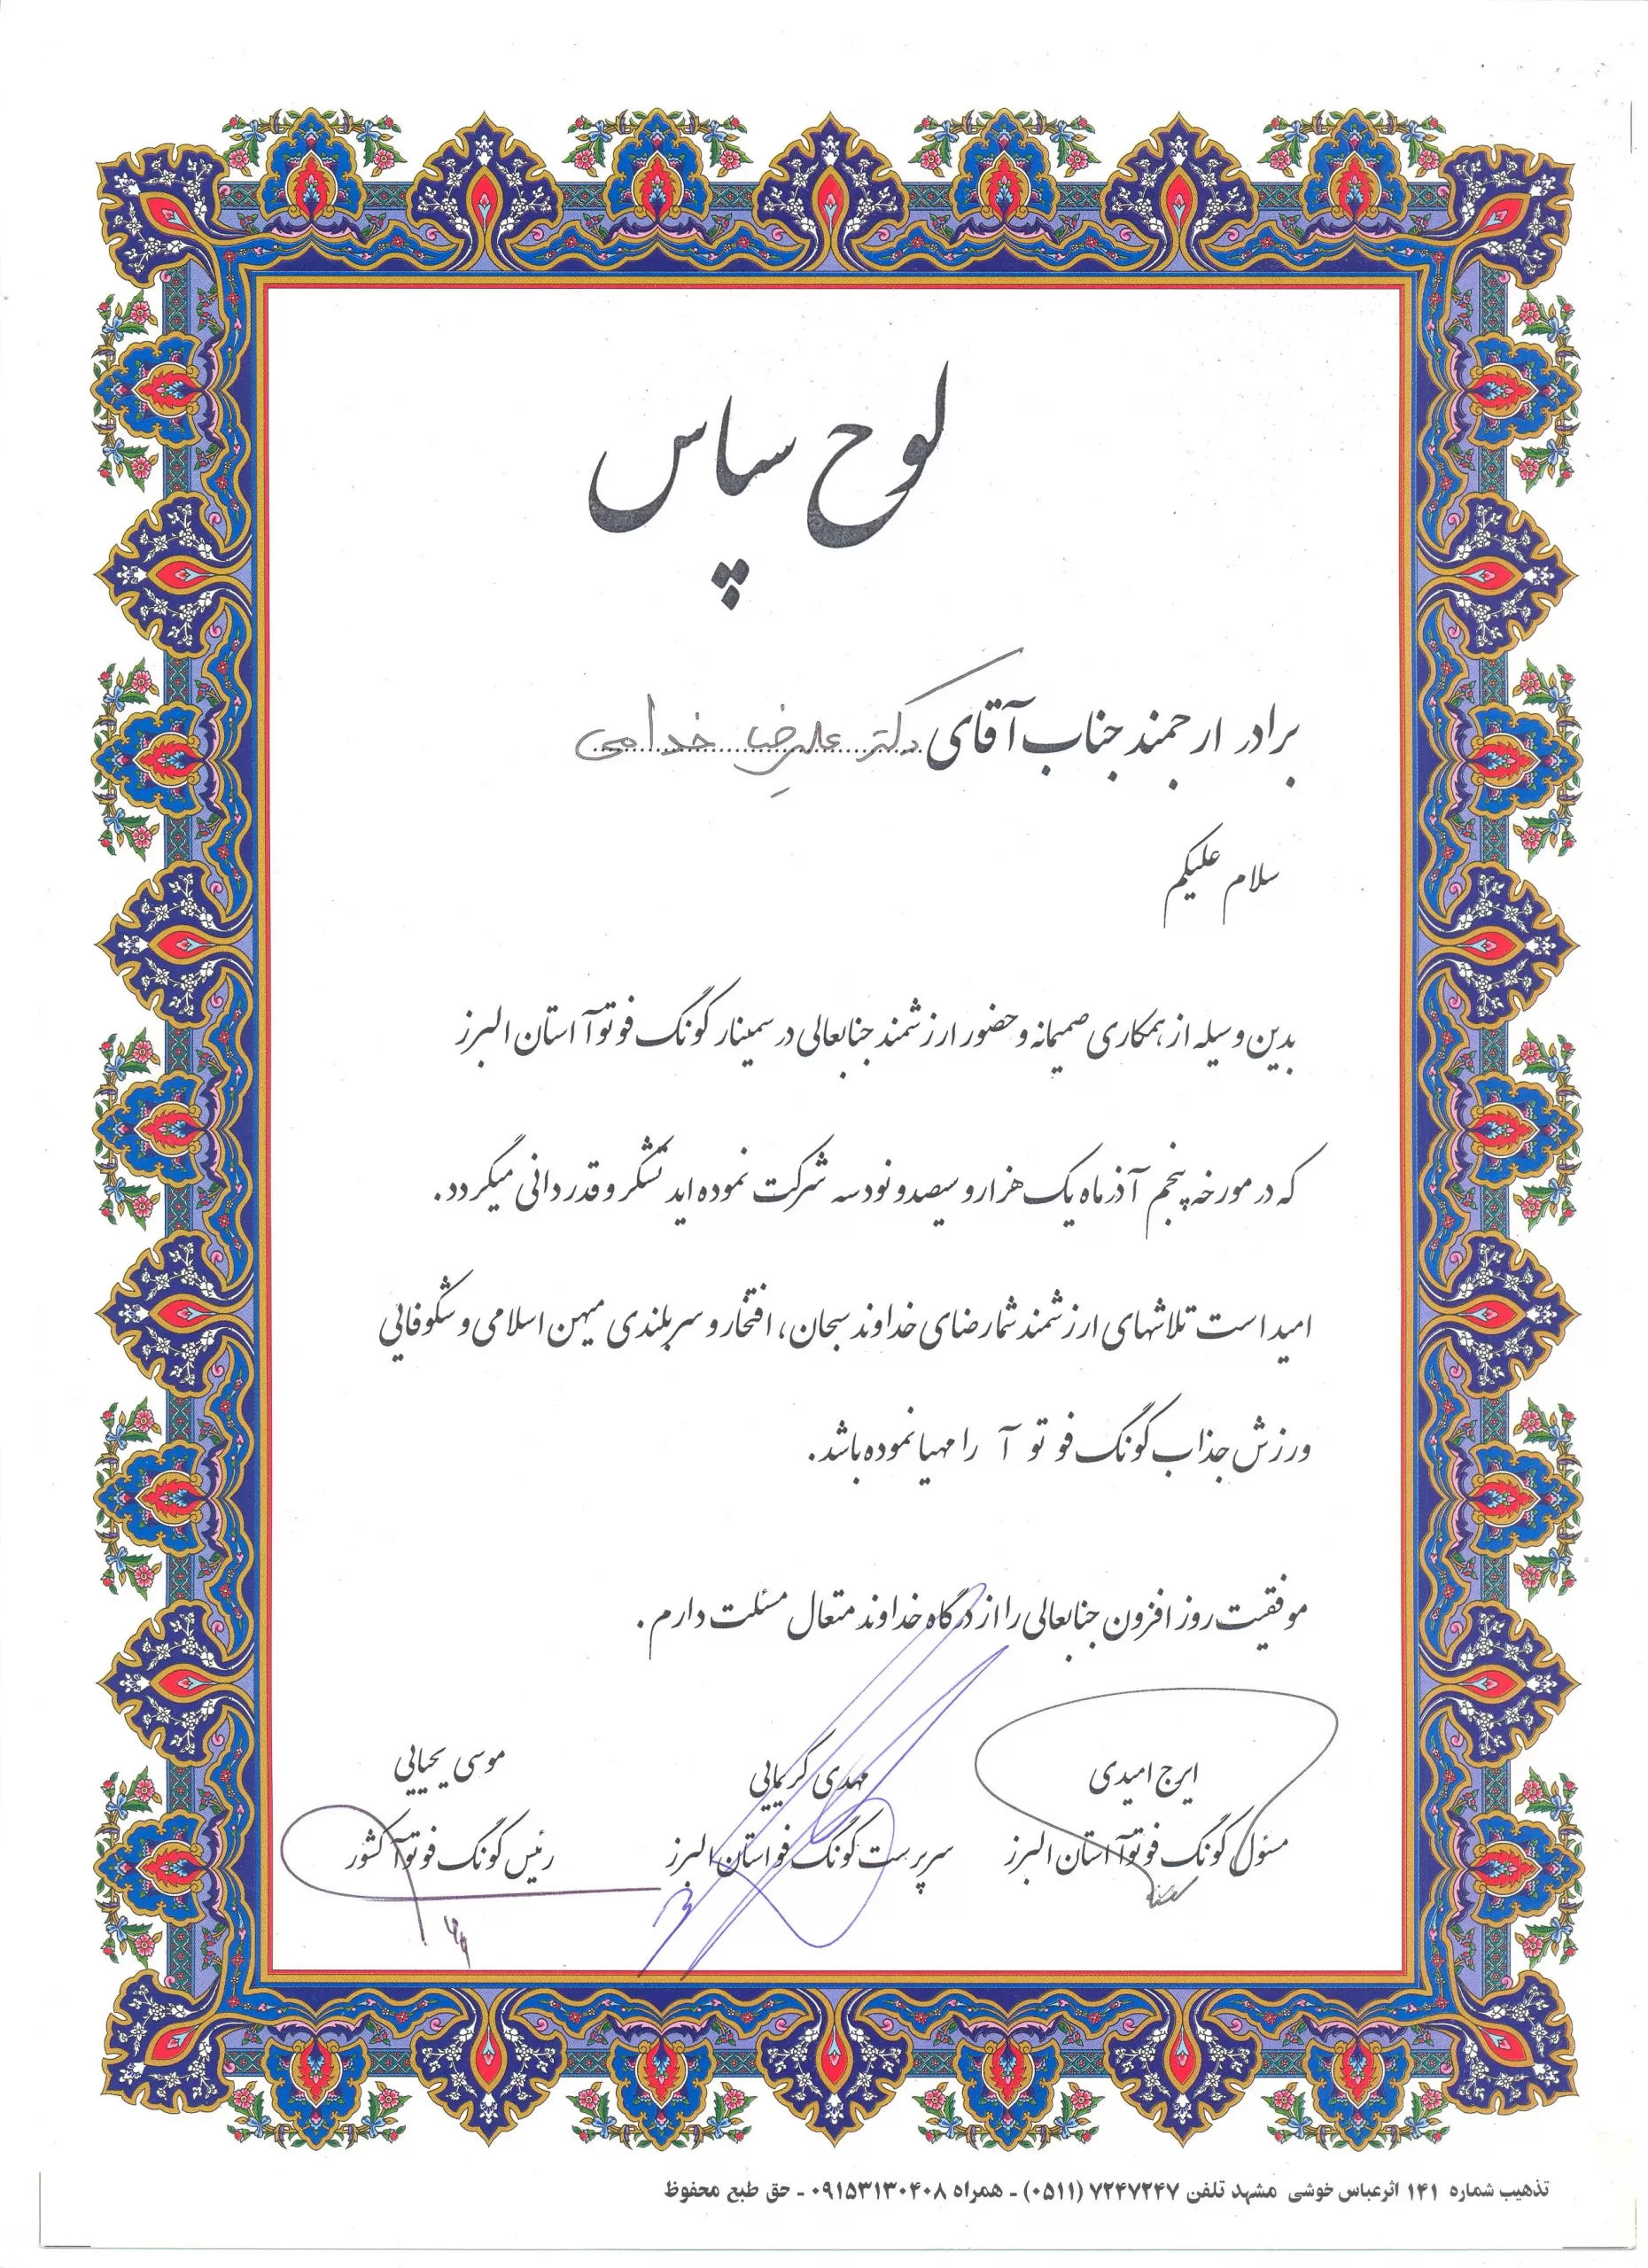 لوح سپاس
برادر ارجمند جناب آقای دکتر علیرضا خدامی
سلام علیکم
بدین وسیله از همکاری صمیمانه و حضور ارزشمند جنابعالی در سمینار گونگ فو توآ استان البرز
که در مورخه پنجم آذرماه یک هزار و سیصد و نود سه شرکت نموده اید تشکر و قدردانی میگردد.
امید است تلاشهای ارزشمند شما رضای خداوند سبحان، افتخار و سربلندی میهن اسلامی و شکوفایی
ورزش جذاب گونگ فو تو آ را مهیا نموده باشد.
موفقیت روز افزون جنابعالی را از درگاه خداوند متعال مسئلت دارم.
ایرج امیدی
مسئول گونگ فو توآ استان البرز
مهدی کریمایی
سرپرست گونگ فو استان البرز
موسی یحیایی
رئیس گونگ فو توآ کشور
تذهیب شماره ۱۴۱ اثرعباس خوشی مشهد تلفن ۷۲۴۷۲۴۷ (۰۵۱۱) - همراه ۰۹۱۵۳۱۳۰۴۰۸ - حق طبع محفوظ